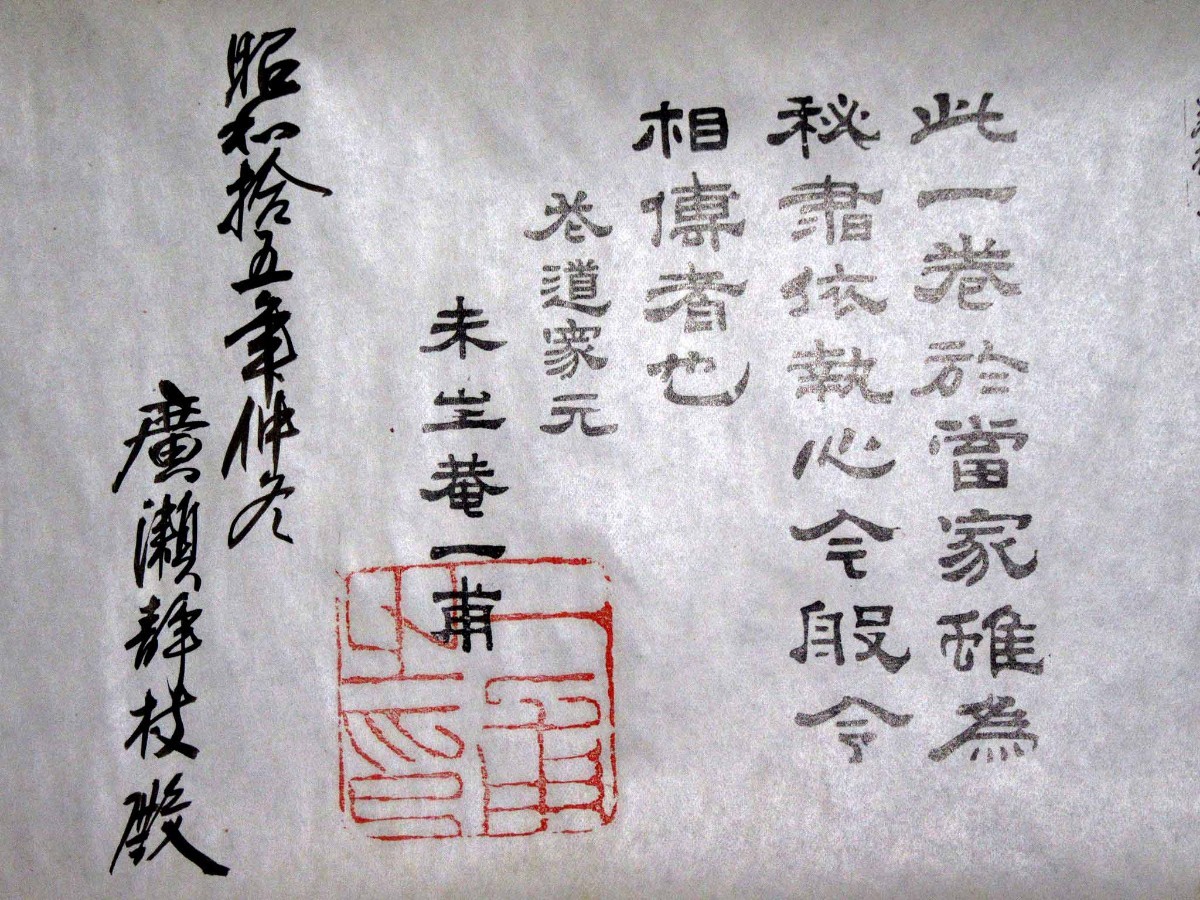 此一巻於當家雖為
秘書依執心今般令
相傳者也
花道家元
未生庵一甫
一甫之印
昭和拾五年仲冬
廣瀬静枝殿